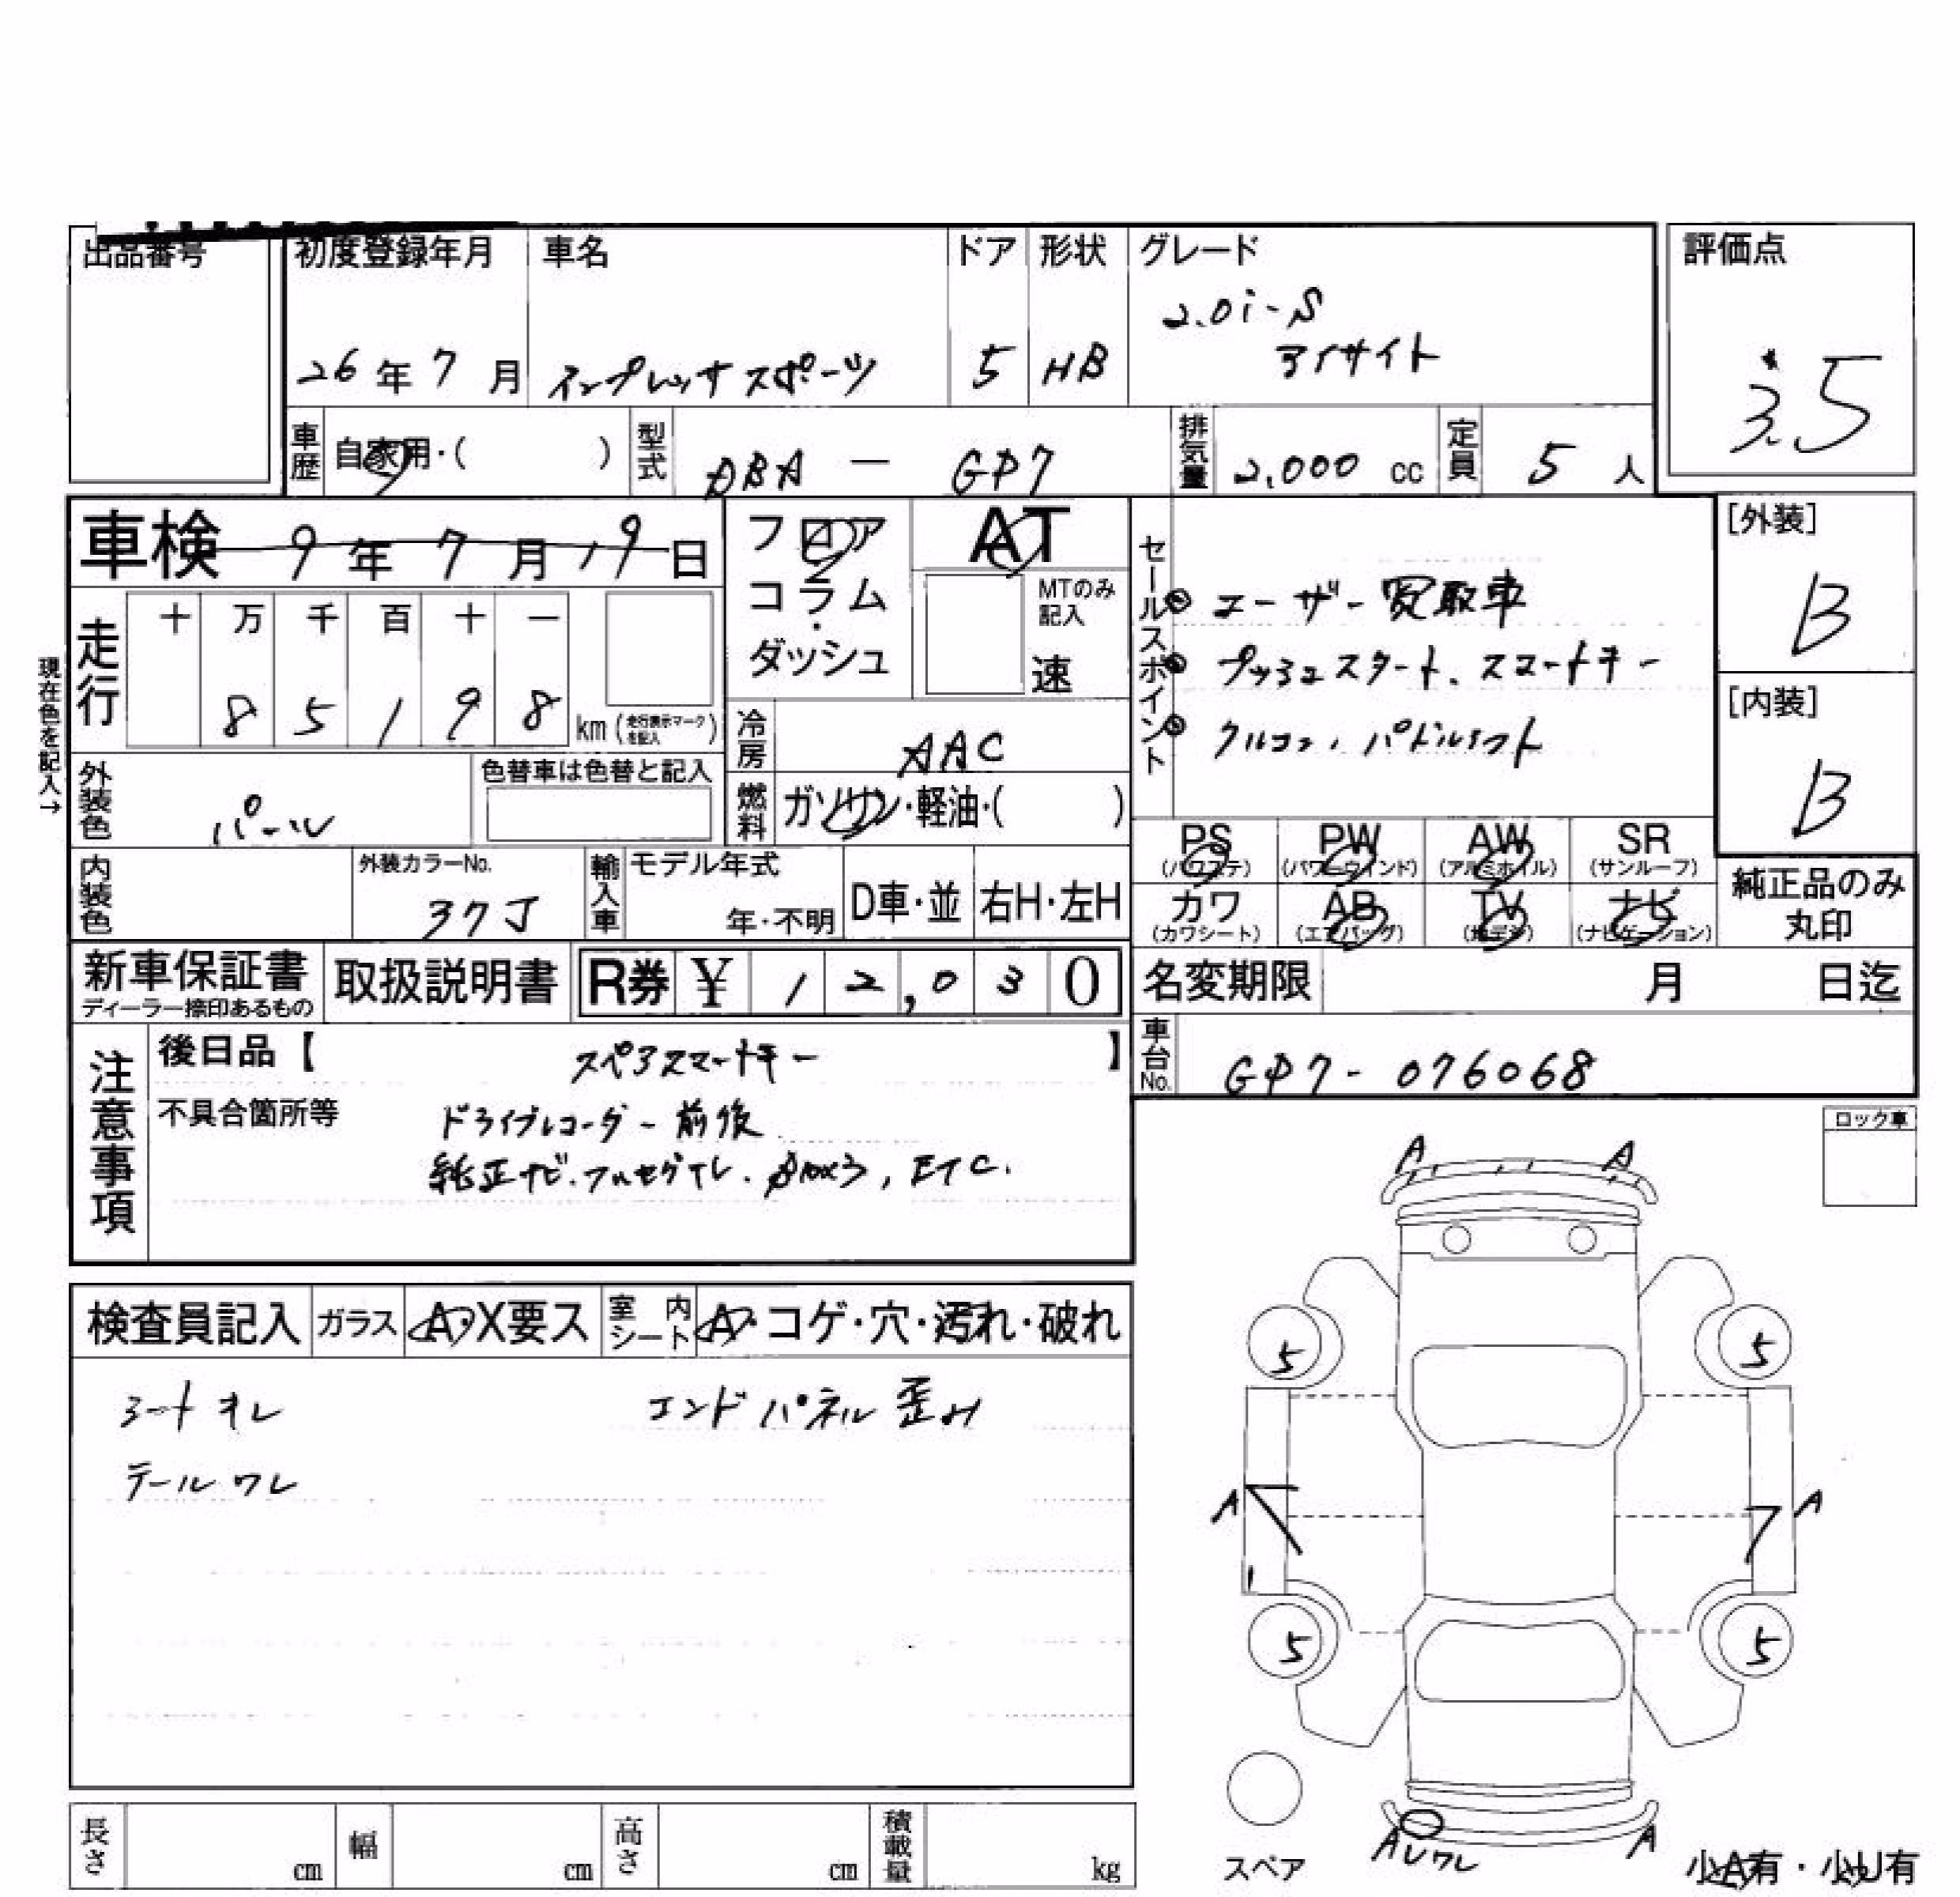 出品番号
初度登録年月 車名 ドア 形状 グレード 評価点
2.0i-S
26年7月 インプレッサスポーツ 5 HB アイサイト
3.5
車歴 自家用・( ) 型式 DBA - GP7 排気量 2,000 cc 定員 5人
車検 9年7月19日 フロア AT [外装]
コラム・ MTのみ記入
ダッシュ 速
セールスポイント
◎ユーザー買取車 B
◎プッシュスタート、スマートキー
◎クルコン、パドルシフト
[内装]
B
走行 十 万 千 百 十 一
8 5 1 9 8 km (走行表示マークを記入)
現在色を記入→
冷房 AAC
外装色 パール 色替車は色替と記入
燃料 ガソリン・軽油・( )
PS PW AW SR
(パワステ) (パワーウインド) (アルミホイル) (サンルーフ)
カワ AB TV ナビ
(カワシート) (エアバッグ) (地デジ) (ナビゲーション)
純正品のみ
丸印
内装色 外装カラーNo. 37J 輸入車 モデル年式 年・不明 D車・並 右H・左H
新車保証書 取扱説明書 R券 ¥ 12,030 名変期限 月 日迄
ディーラー捺印あるもの
車台No. GP7-076068
注意事項
後日品【 スペアスマートキー 】
不具合箇所等 ドライブレコーダー前後
純正ナビ.フルセグTV. ETC.
ロック車
検査員記入 ガラス A・X要ス 室内シート A・コゲ・穴・汚れ・破れ
シートキレ エンドパネル歪み
テールワレ
A A
5 5
A A
5 5
スペア
A U ワレ A
小A有・小U有
長さ cm 幅 cm 高さ cm 積載量 kg